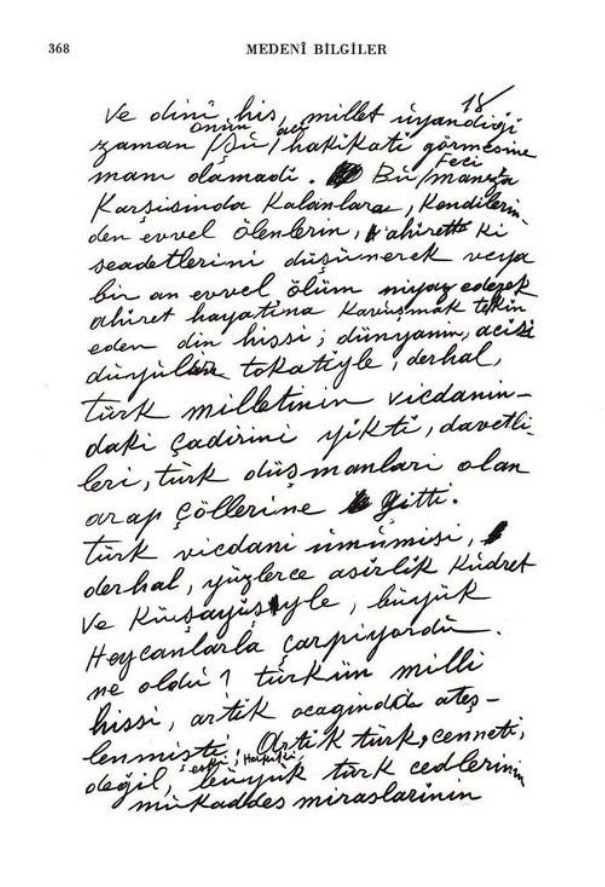 368
MEDENÎ BİLGİLER
18
Ve dinî his, millet üyandiği
zaman onün /Şü/ aci hakikati görmesine
mani olamadi. Bü/Feci manzara
Karşisinda Kalanlara, Kendilerin
den evvel ölenlerin, ahiretteki
seadetlerini düşünerek veya
bir an evvel ölüm niyaz ederek
ahiret hayatina Kavuşmak telkin
eden din hissi; dünyanin, acisi
düyülan tokatiyle, derhal,
türk milletinin vicdanin-
daki çadirini yikti, davetli-
leri, türk düşmanlari olan
arap çöllerine gitti.
türk vicdani ümümisi,
derhal, yüzlerce asirlik Küdret
ve Küşayişiyle, büyük
Heycanlarla çarpiyordü.
ne oldü? türkün milli
hissi, artik ocaginda ateş-
lenmişti. Artik türk, cenneti,
değil, eski, Hakiki, büyük türk cedlerinin
mükaddes miraslarinin